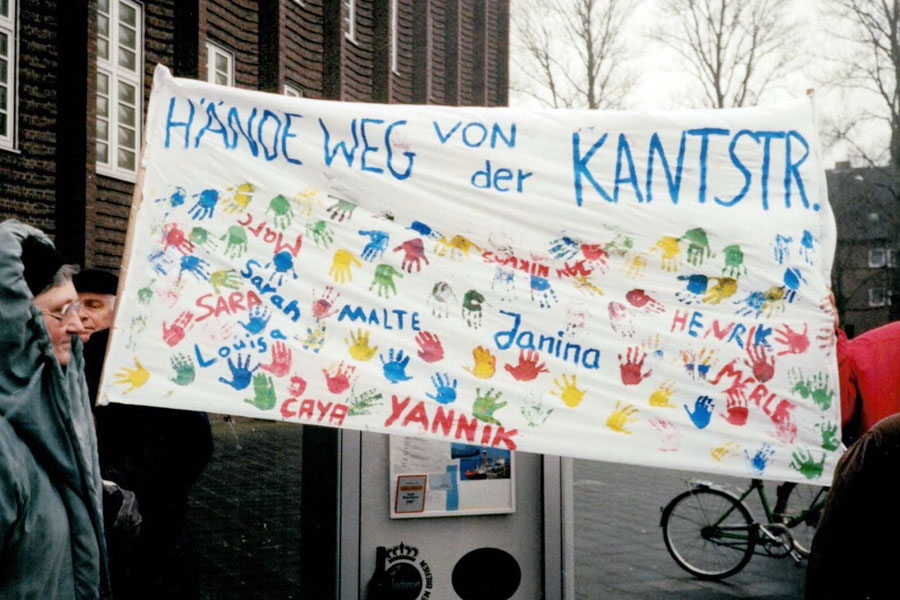 HÄNDE WEG VON
der KANTSTR.
Marc
JAN NIKLAS
Sarah
SARA
MALTE
Janina
HENRIK
Louisa
MERLE
CAYA
YANNIK